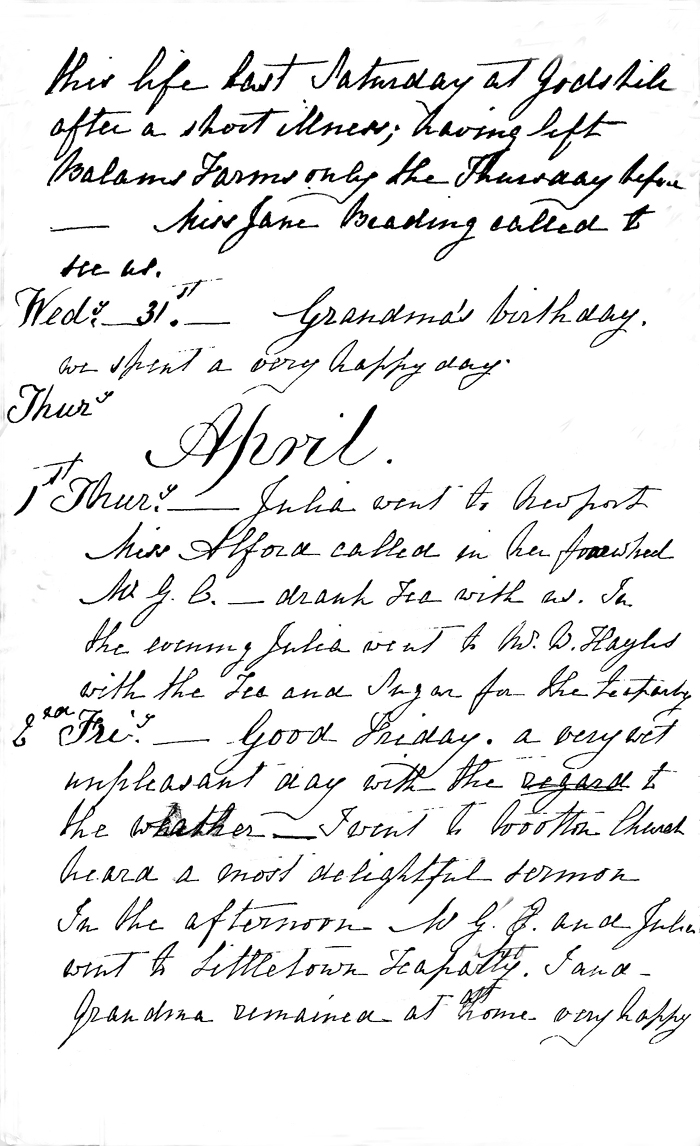 this life last Saturday at Godshile
after a short illness; having left
Balams Farms only the Thursday before
— Miss Jane Beading called to
see us.
Wedy. — 31st. — Grandma's birthday.
we spent a very happy day.
Thury
April.
1st Thury. — Julia went to Newport
Miss Alford called in her
Mr G. C. — drank Tea with us. In
the evening Julia went to Mr. W. Hayles
with the Tea and Sugar for the teaparty
2nd Friy. — Good Friday. a very wet
unpleasant day with the regard to
the whether — I went to Wootton Church
heard a most delightful sermon
In the afternoon Mr G. and Julia
went to Littletown Teaparty. I and
Grandma remained at home very happy